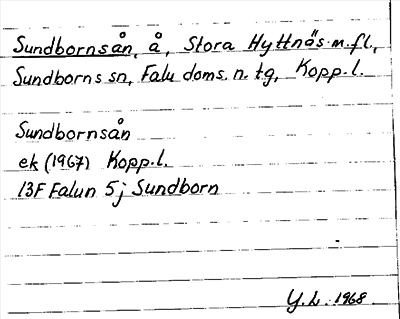 Sundbornsån, å, Stora Hyttnäs m.fl.,
Sundborns sn, Falu doms. n. tg, Kopp.l.
Sundbornsån
ek (1967) Kopp.l.
13F Falun 5j Sundborn
Y.L. 1968